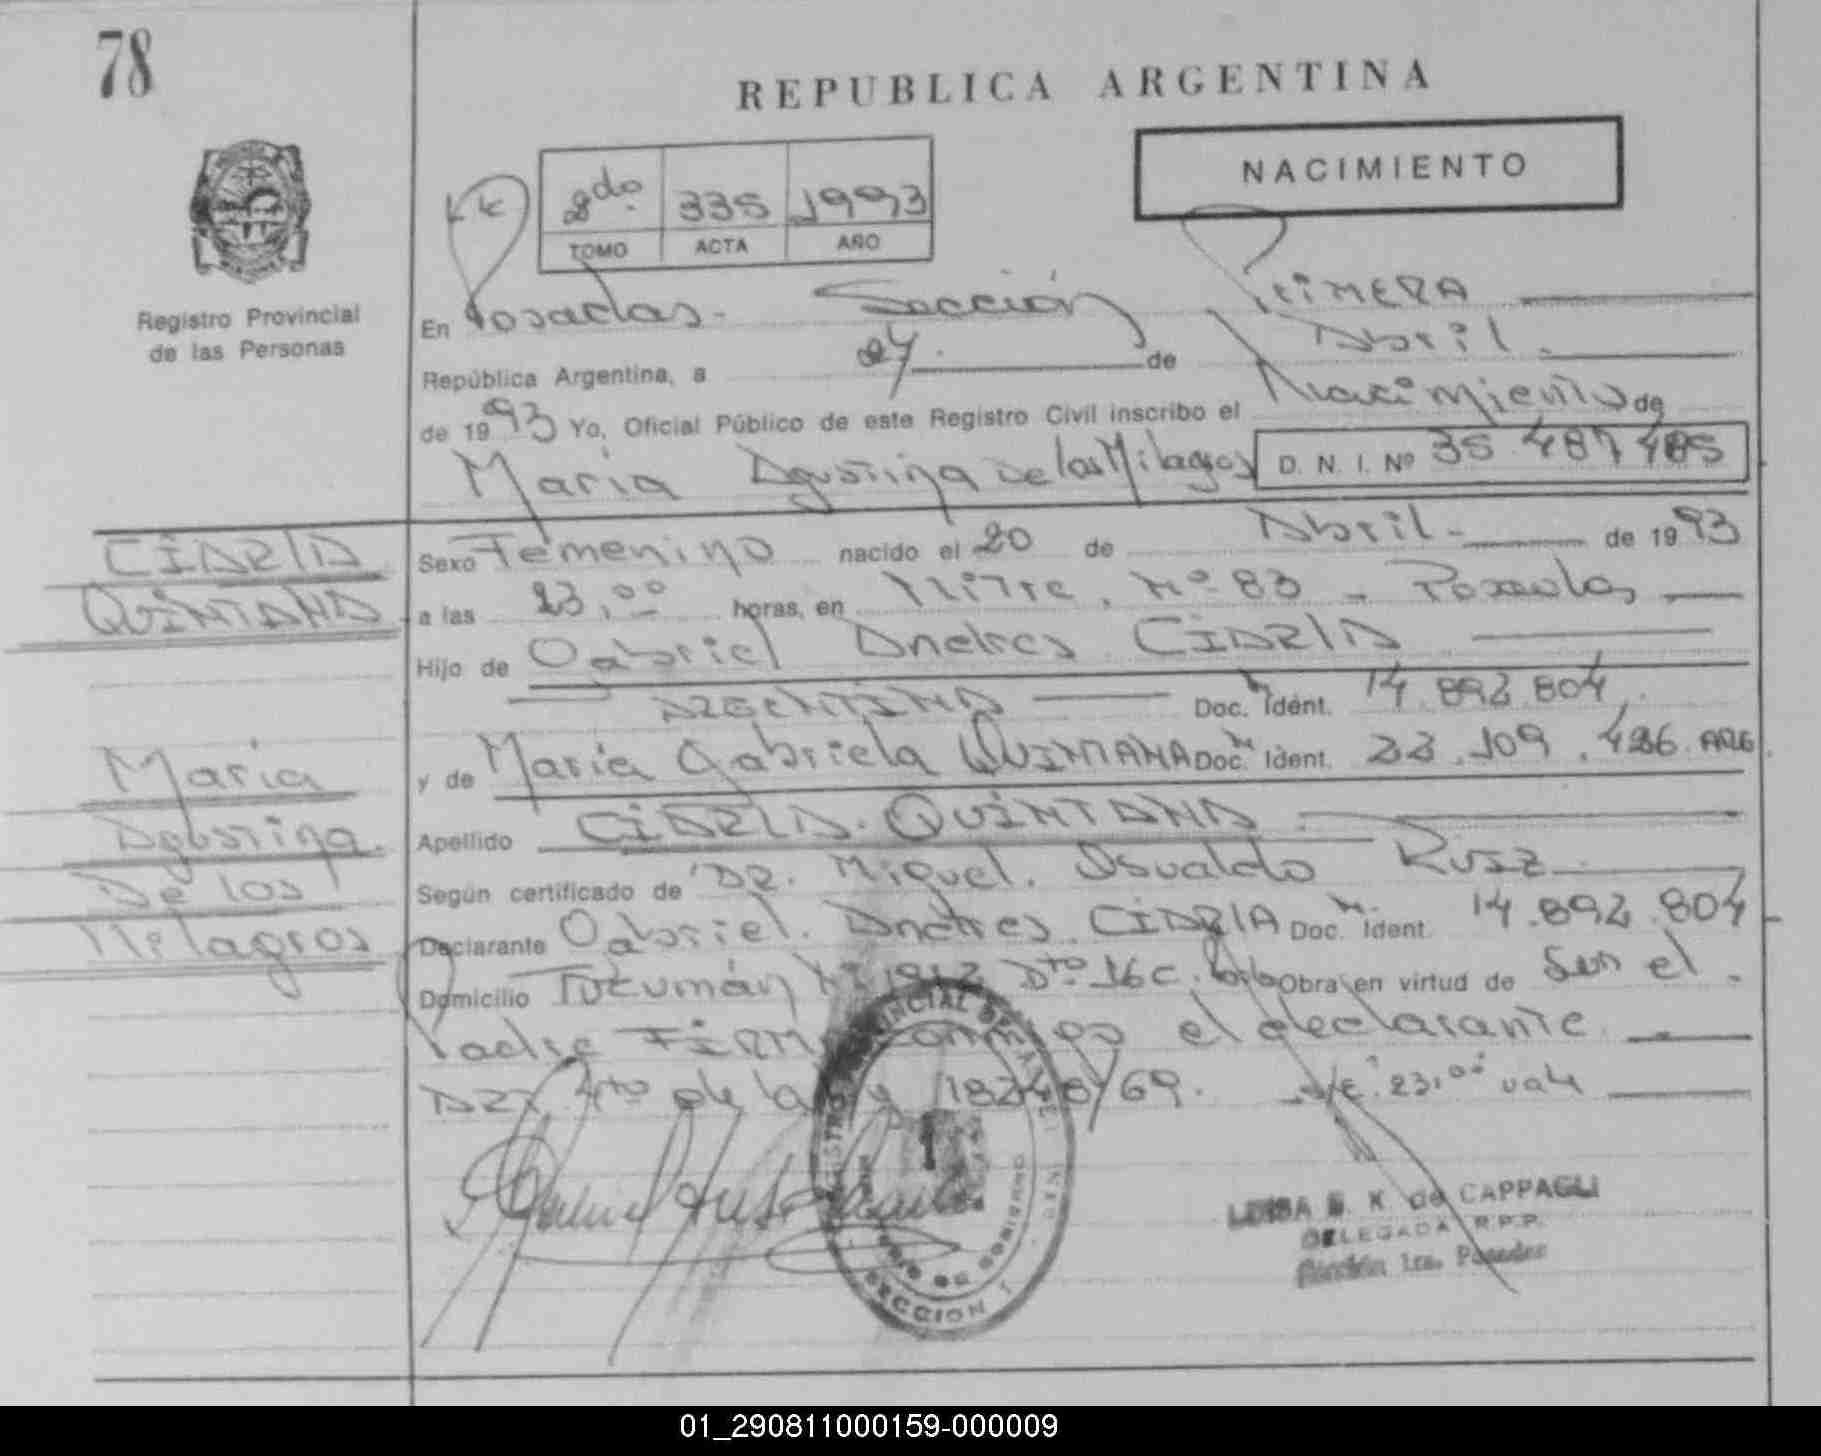 78
REPUBLICA ARGENTINA
NACIMIENTO
2do. 335 1993
TOMO ACTA AÑO
Registro Provincial
de las Personas
En Posadas - Sección Primera
República Argentina, a 24 de Abril
de 1993 Yo, Oficial Público de este Registro Civil inscribo el Nacimiento de
Maria Agustina De los Milagros D. N. I. Nº 35.487.485
CIDRIA
QUINTANA
Sexo Femenino nacido el 20 de Abril - de 1993
a las 23,00 horas, en Mitre, Nº 83 - Posadas
Hijo de Gabriel Andres CIDRIA
ARGENTINA Doc. Ident. 14.892.804
y de Maria Gabriela QUINTANA Doc. Ident. 23.109.486 ARG.
Maria
Agustina
De los
Milagros
Apellido CIDRIA. QUINTANA
Según certificado de DR. Miguel. Osvaldo Ruiz
Declarante Gabriel. Andres. CIDRIA Doc. Ident. 14.892.804
Domicilio Tucumán Nº 1912 Dto 16 C. Obra en virtud de Ser el
Padre Firma conmigo el declarante
ART. 4to de la Ley 18248/69. S/E: 23,00 vale
SECCION 1
LUISA E. K. de CAPPAGLI
DELEGADA R.P.P.
Sección 1ra. Posadas
01_290811000159-000009